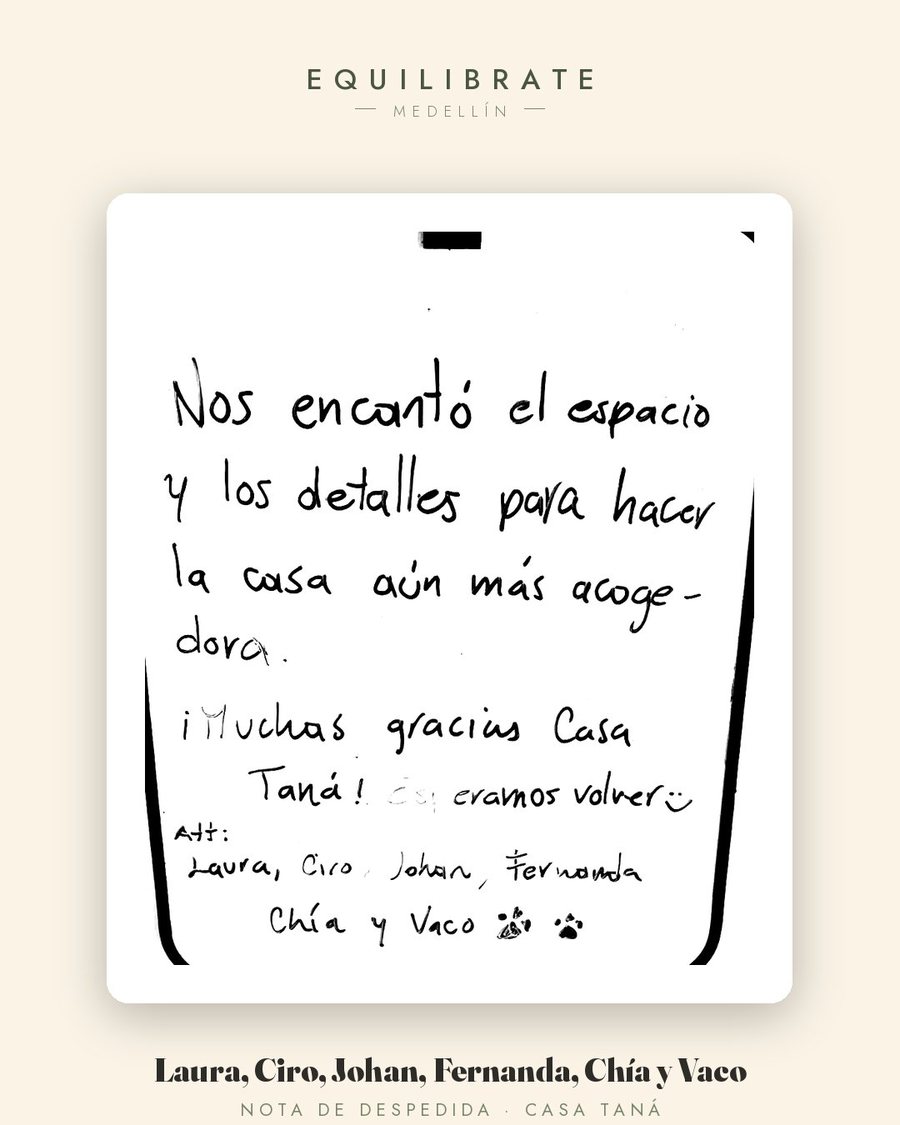 EQUILIBRATE
MEDELLÍN
Nos encantó el espacio
y los detalles para hacer
la casa aún más acoge-
dora.
¡Muchas gracias Casa
Taná! Esperamos volver
Att:
Laura, Ciro, Johan, Fernanda
Chía y Vaco
Laura, Ciro, Johan, Fernanda, Chía y Vaco
NOTA DE DESPEDIDA · CASA TANÁ